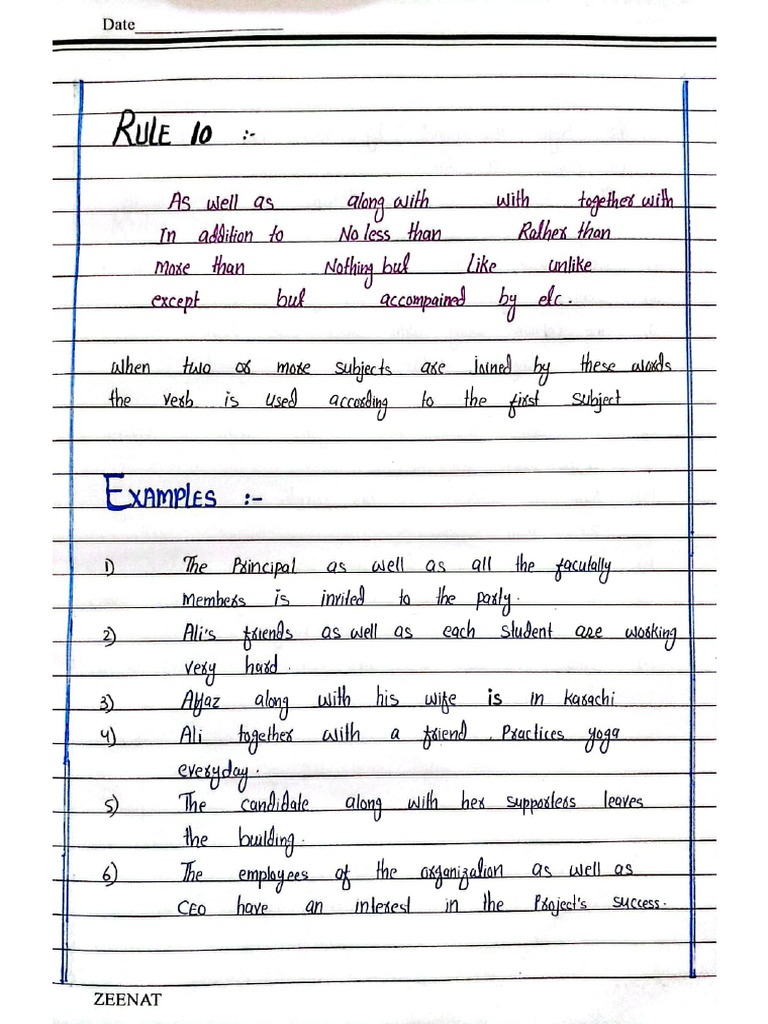 Date
RULE 10 :-
As well as along with with together with
In addition to No less than Rather than
more than Nothing but Like unlike
except but accompained by etc.
when two or more subjects are joined by these words
the verb is used according to the first subject
EXAMPLES :-
1) The Principal as well as all the facultally
members is invited to the party.
2) Ali's friends as well as each student are working
very hard.
3) along with his wife is in Karachi
4) Ali together with a friend . Practices yoga
everyday.
5) The candidate along with her supporters leaves
the building.
6) The employees of the organization as well as
CEO have an interest in the Project's success.
ZEENAT